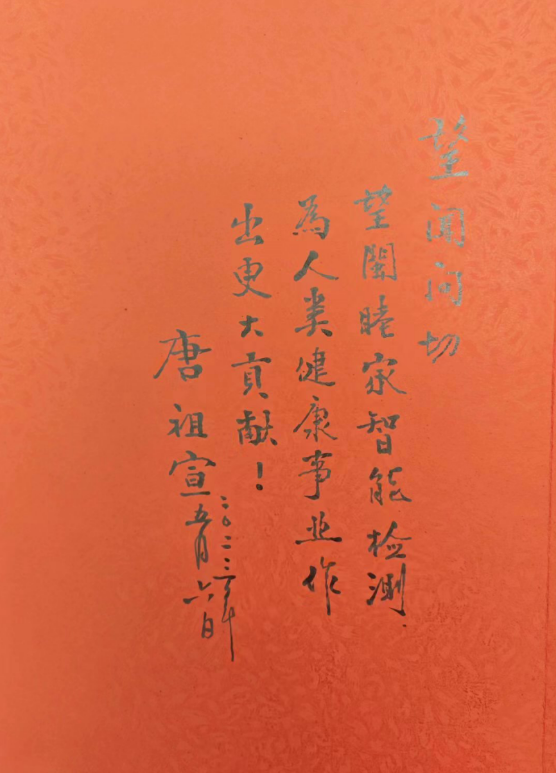 望闻问切
望闻睦家智能检测
為人类健康事业作
出更大贡献！
唐祖宣
二〇二三年
五月六日